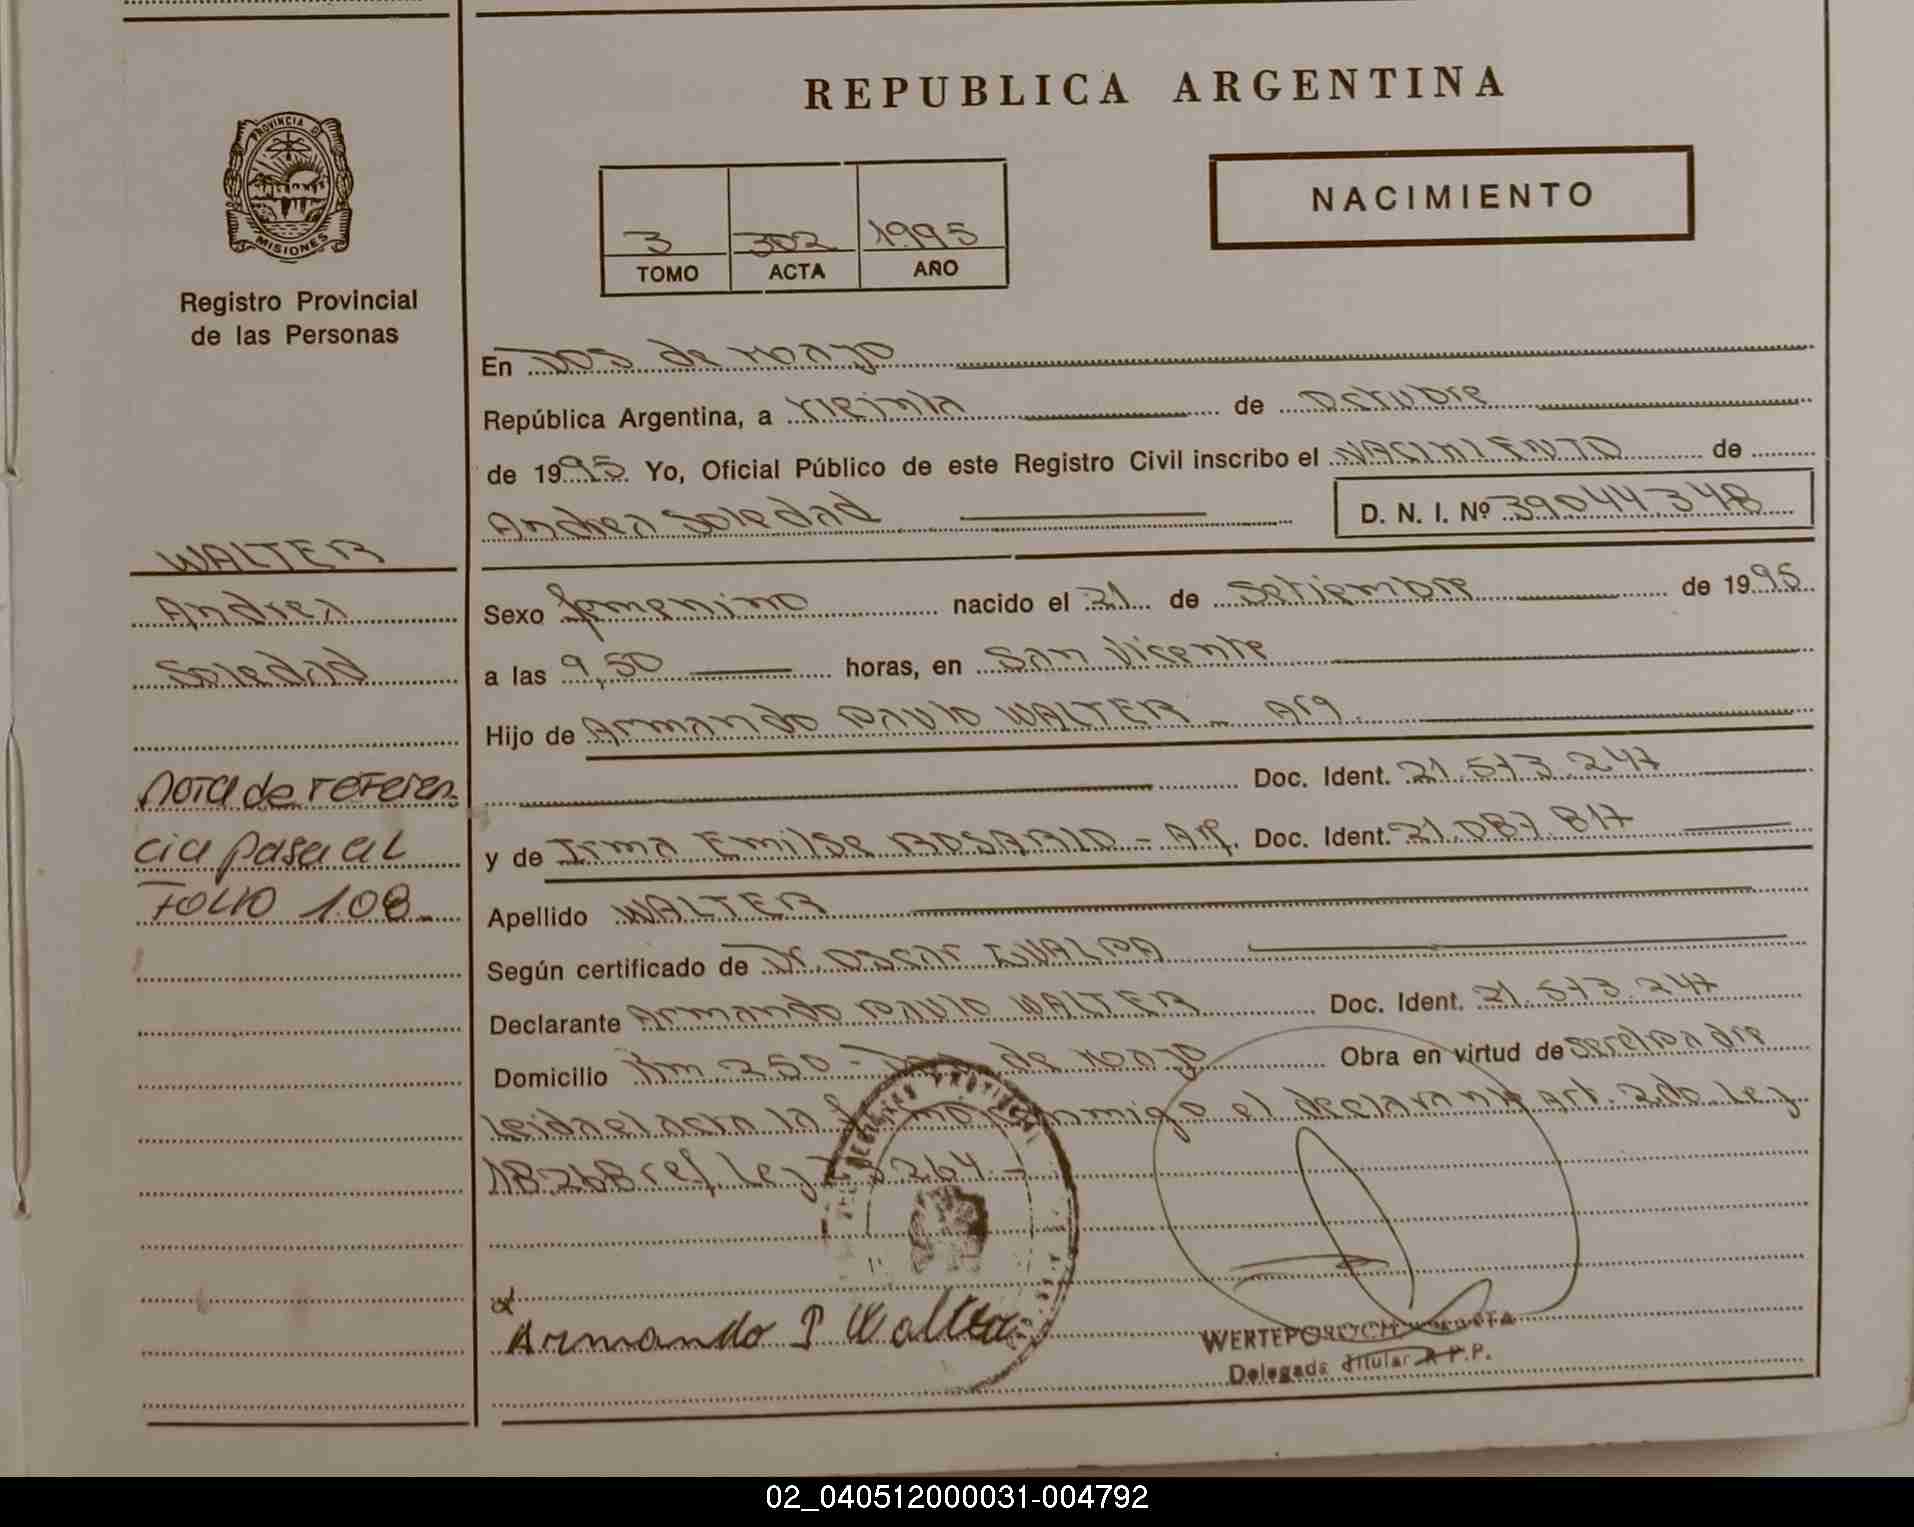 REPUBLICA ARGENTINA
PROVINCIA D
MISIONES
Registro Provincial
de las Personas
NACIMIENTO
3 302 1995
TOMO ACTA AÑO
En Dos de Mayo
República Argentina, a treinta de Octubre
de 1995. Yo, Oficial Público de este Registro Civil inscribo el NACIMIENTO de
Andrea Soledad D. N. I. Nº 39044348
WALTER
Andrea
Soledad
nota de referen
cia pasa al
FOLIO 108
Sexo femenino nacido el 21 de Setiembre de 1995
a las 9,50 horas, en San Vicente
Hijo de Armando Paulo WALTER - Arg.
Doc. Ident. 21.573.247
y de Irma Emilse ROSARIO - Arg. Doc. Ident. 21.087.817
Apellido WALTER
Según certificado de Dr. Oscar
Declarante Armando Paulo WALTER Doc. Ident. 21.573.247
Domicilio Km 250 - Dos de Mayo Obra en virtud de ser el padre
Leida el acta la firma conmigo el declarante Art. 2do. Ley
18268 ref. Ley
Armando P Walter
Delegada Titular R.P.P.
02_040512000031-004792